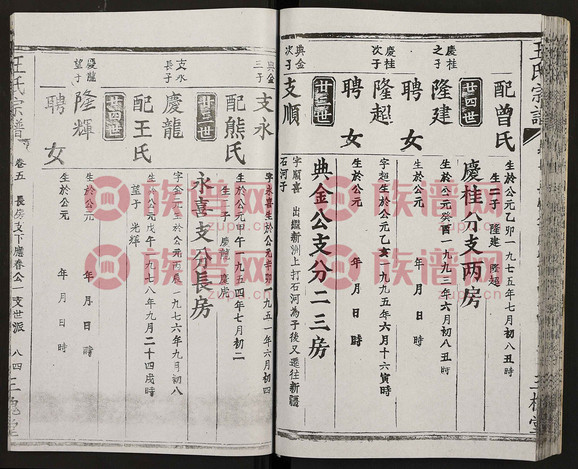 王氏宗譜
三槐堂
配曾氏
生於公元乙卯一九七五年七月初八丑時
生二子 隆建 隆超
廿四世
慶桂分支两房
慶桂之子
隆建
生於公元癸酉一九九三年六月初八丑時
聘女
生於公元 年 月 日 時
慶桂次子
隆超
字超生於公元乙亥一九九五年六月十六寅時
聘女
生於公元 年 月 日 時
廿三世
典金公支分二三房
典金次子
支順
字順喜 出繼新洲上打石河為子後又遷往新疆
石河子
典金三子
支永
字永喜生於公元辛卯一九五一年六月初四
配熊氏
生於公元甲午一九五四年七月初二
生二子 慶龍 慶虎
廿三世
永喜支分長房
支永長子
慶龍
字金元生於公元丙辰一九七六年九月初八
配王氏
生於公元戊午一九七八年九月二十四戌時
望子 光輝
慶龍望子
隆輝
生於公元 年 月 日 時
聘女
生於公元 年 月 日 時
王氏宗譜
卷五 長房支下應春公一支世派 八四
三槐堂
族谱网
zupu.cn
族谱网
zupu.cn